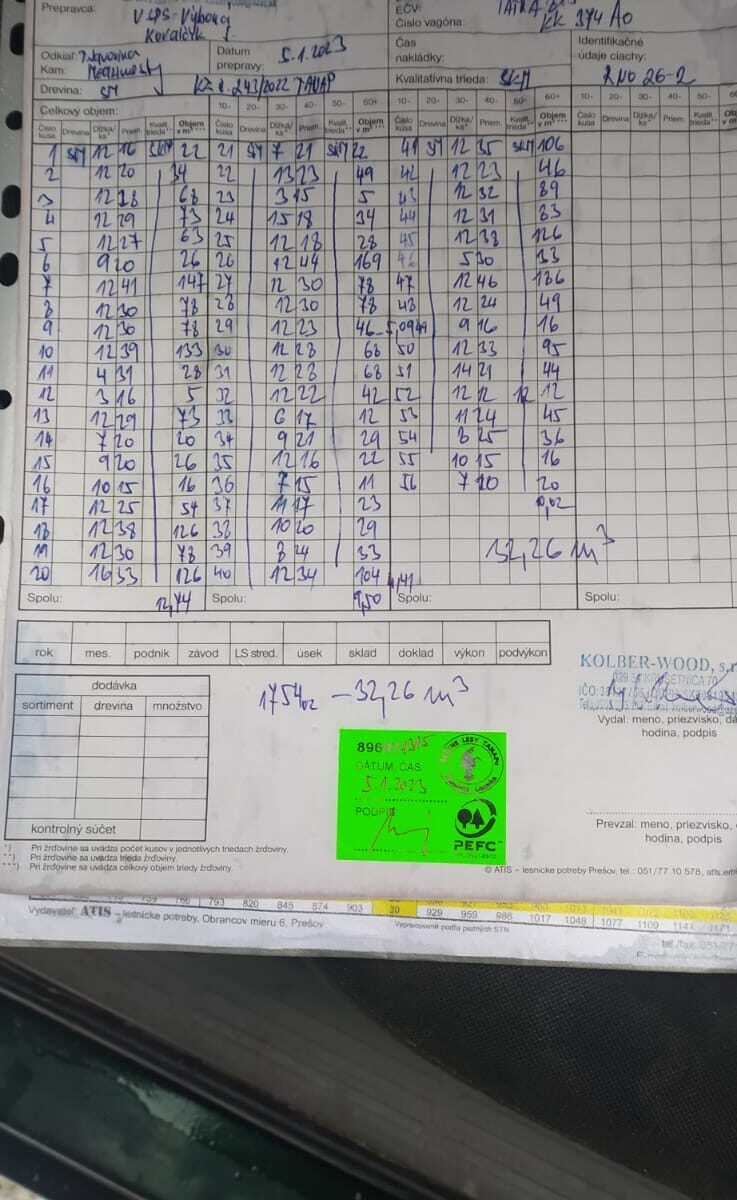 Prepravca:
EČV:
Číslo vagóna: KK 374 AO
Odkiaľ:
Kam:
Dátum
prepravy: 5.1.2023
Čas
nakládky:
Identifikačné
údaje ciachy: RNO 26-2
Drevina: SM
Kvalitatívna trieda:
Celkový objem: 10- 20- 30- 40- 50- 60+ 10- 20- 30- 40- 50- 60+ 10- 20- 30- 40- 50-
Číslo kusa Drevina Dĺžka/ks* Priem. Kvalit. trieda** Objem v m³***
1 SM 12 16 22 21 SM 7 21 22 41 SM 12 35 106
2 12 20 34 22 13 23 49 42 12 23 46
3 12 28 68 23 3 15 5 43 12 32 89
4 12 29 73 24 15 18 34 44 12 31 83
5 12 27 63 25 12 18 28 45 12 38 126
6 9 20 26 26 12 44 169 46 5 30 33
7 12 41 147 27 12 30 78 47 12 46
8 12 30 78 28 12 30 78 48 12 24 49
9 12 30 78 29 12 23 46 49 9 16 16
10 12 39 133 30 12 28 68 50 12 33 95
11 4 31 28 31 12 28 68 51 14 21 44
12 3 16 5 32 12 22 42 52 12 12 12
13 12 29 73 33 6 17 12 53 11 24 45
14 7 20 20 34 9 21 29 54 8 25 36
15 9 20 26 35 12 16 22 55 10 15 16
16 10 15 16 36 7 15 11 56 7 20 20
17 12 25 54 37 11 17 23
18 12 38 126 38 10 20 29
19 12 30 78 39 8 24 33
32,26 m³
20 16 33 126 40 12 34 104
Spolu: 12,74 Spolu: 9,50 Spolu: Spolu:
rok mes. podnik závod LS stred. úsek sklad doklad výkon podvýkon
KOLBER-WOOD, s.r
dodávka
sortiment drevina množstvo
1754 – 32,26 m³
Vydal: meno, priezvisko, dá
hodina, podpis
896
DÁTUM, ČAS:
5.1.2023
PODPIS
PEFC
kontrolný súčet
Prevzal: meno, priezvisko,
hodina, podpis
*) Pri žrďovine sa uvádza počet kusov v jednotlivých triedach žrďoviny.
**) Pri žrďovine sa uvádza trieda žrďoviny.
***) Pri žrďovine sa uvádza celkový objem triedy žrďoviny.
© ATIS - lesnícke potreby Prešov, tel.: 051/77 10 578,
793 820 845 874 903 30 929 959 986 1017 1048 1077 1109 1141 1171
Vydavateľ: ATIS – lesnícke potreby, Obrancov mieru 6, Prešov
Vypracované podľa platných STN
tel./fax: 051/77